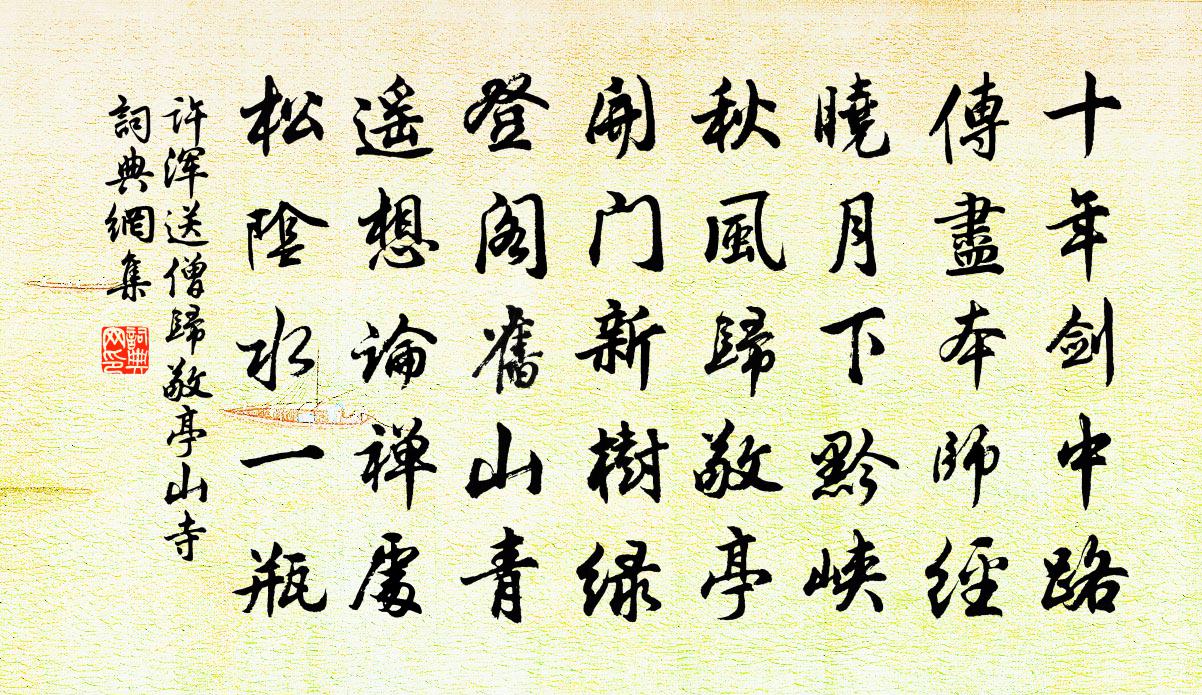 十年剑中路
傳盡本師經
曉月下黔峡
秋風歸敬亭
開门新樹绿
登阁舊山青
遥想論禅處
松陰水一瓶
许渾送僧歸敬亭山寺
詞典網集
詞典
网印